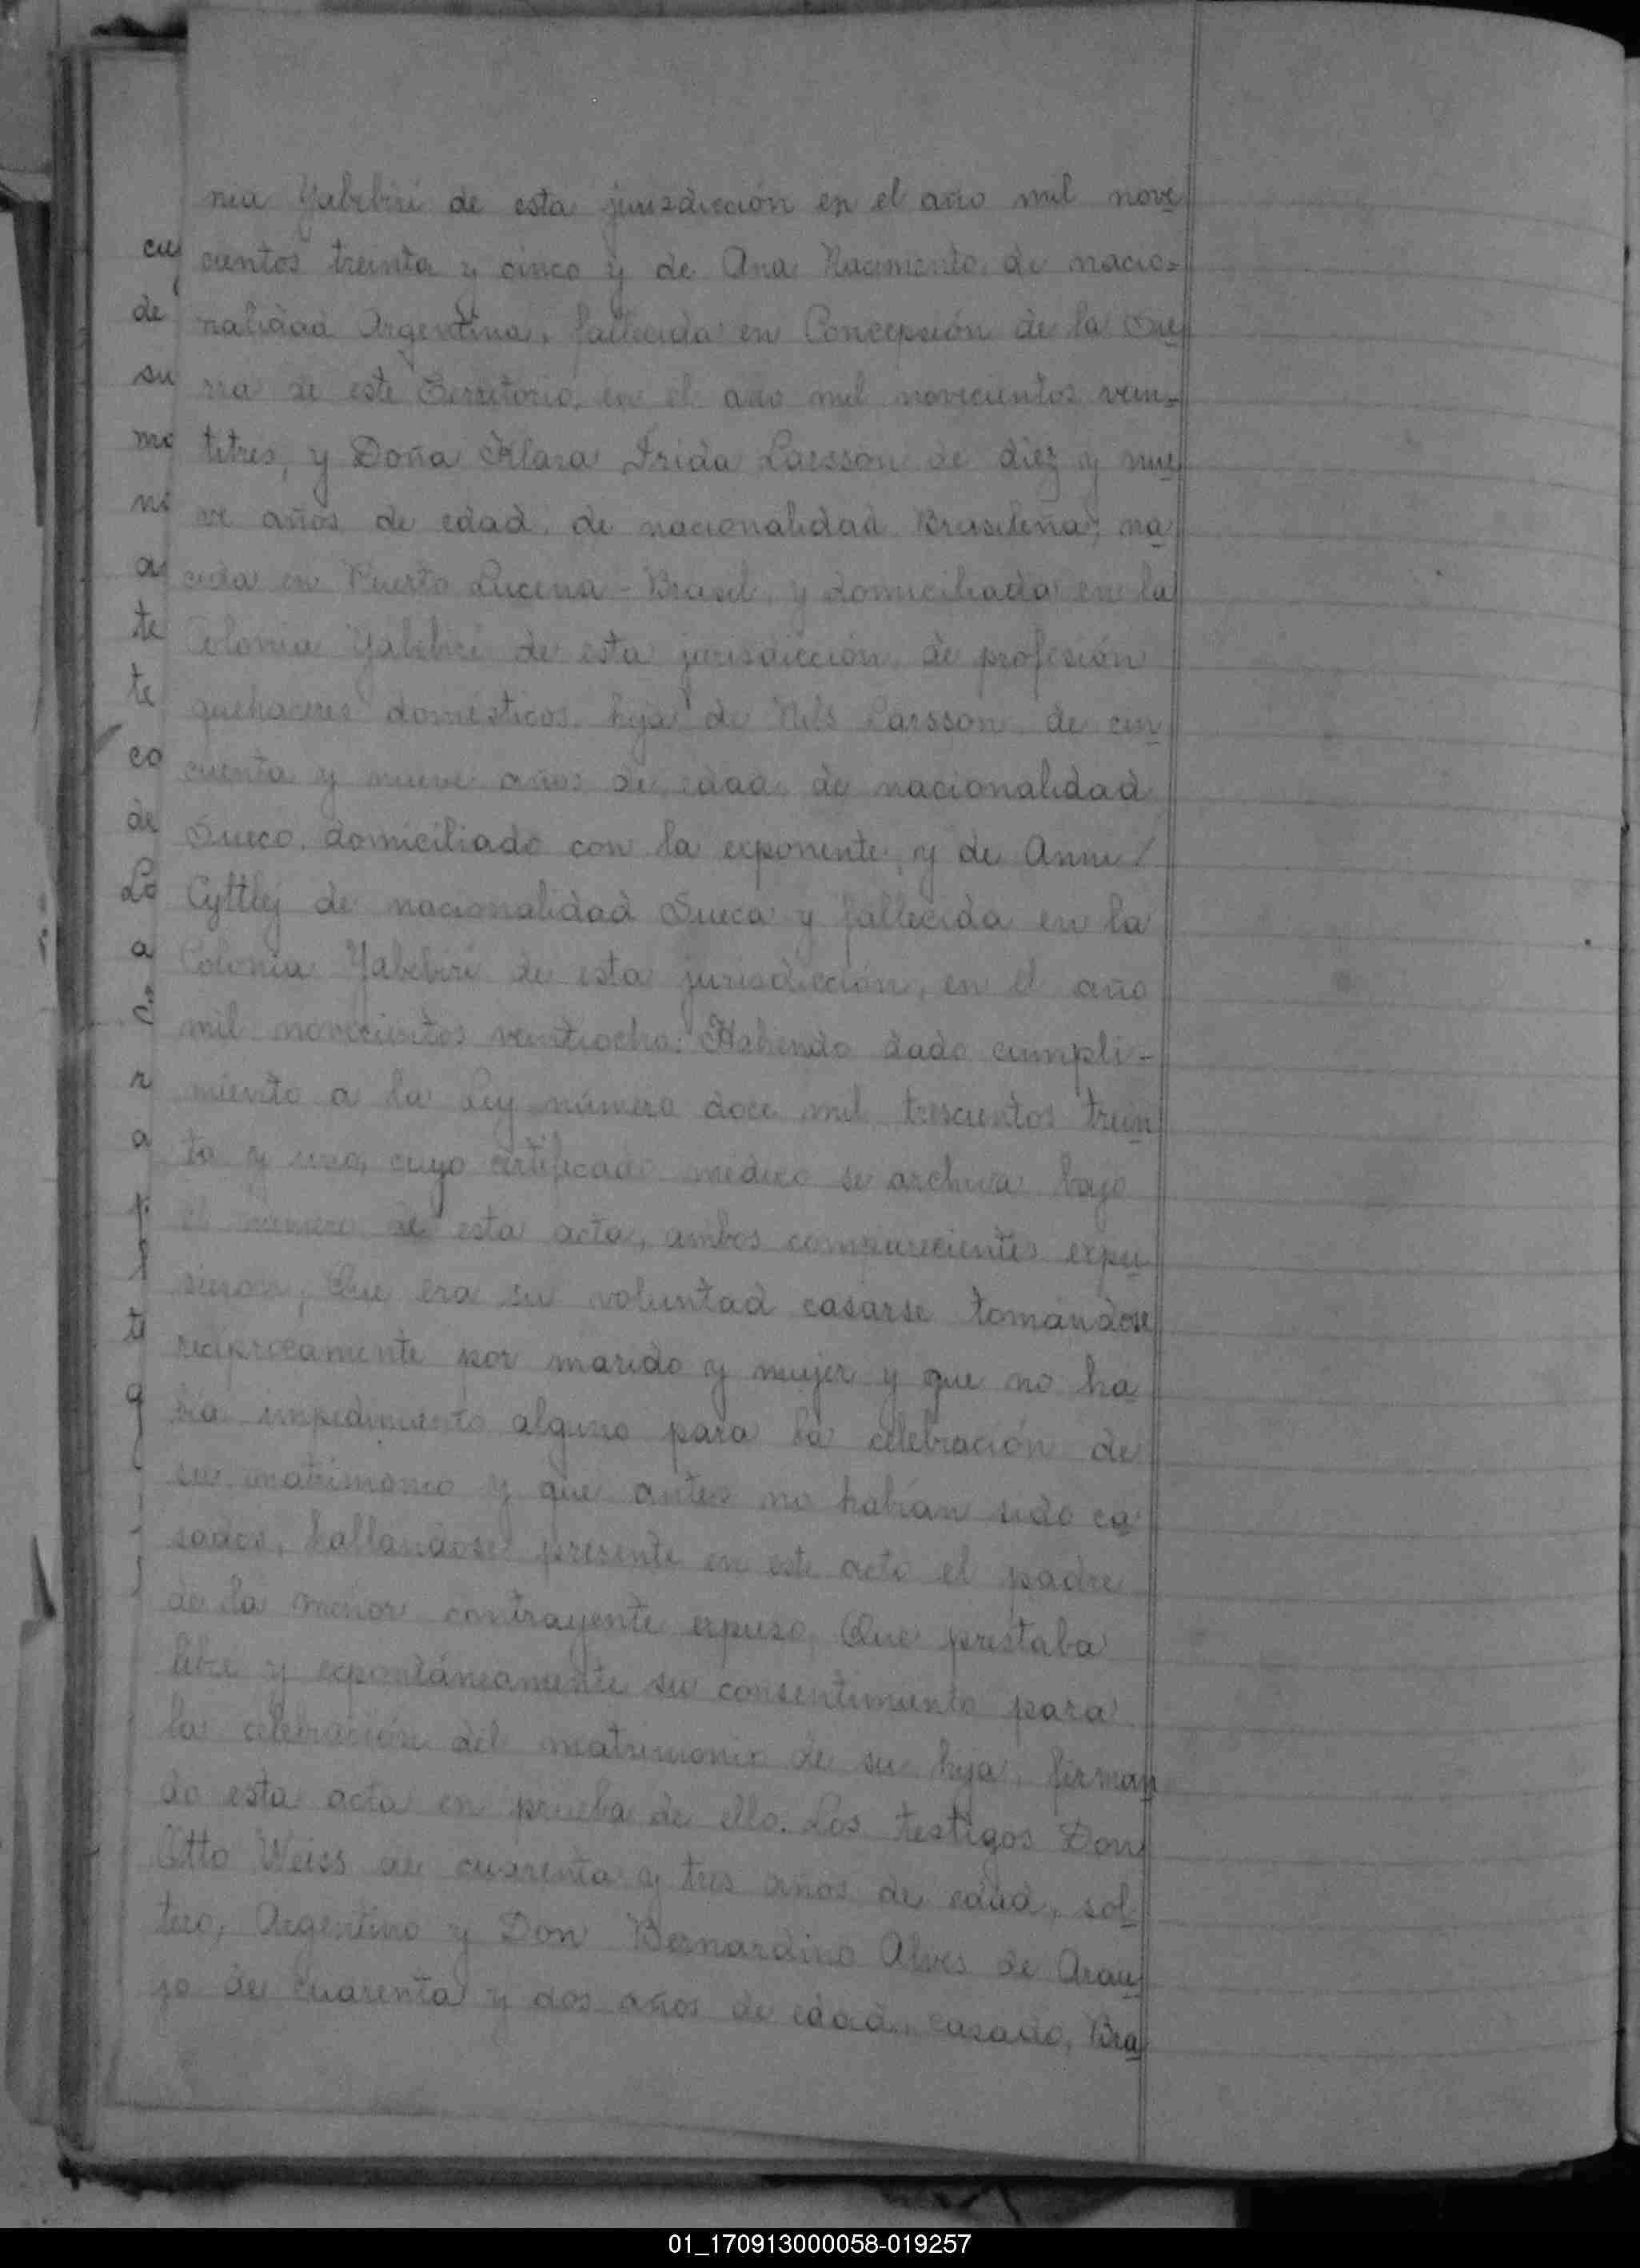 nia Yabebirí de esta jurisdicción en el año mil nove
cientos treinta y cinco y de Ana Nacimento, de nacio=
nalidad Argentina, fallecida en Concepción de la Sie
rra de este Territorio, en el año mil novecientos vein-
titres, y Doña Klara Frida Laesson de diez y nue
ve años de edad, de nacionalidad Brasileña, na
cida en Puerto Lucena - Brasil, y domiciliada en la
Colonia Yabebirí de esta jurisdicción, de profesión
quehaceres domésticos, hija de Nils Larsson, de cin
cuenta y nueve años de edad, de nacionalidad
Sueco, domiciliado con la exponente, y de Anni /
Cyttlej de nacionalidad Sueca y fallecida en la
Colonia Yabebirí de esta jurisdicción, en el año
mil novecientos veintiocho. Habendo dado cumpli-
miento a la Ley número doce mil trescientos trein
ta y uno, cuyo certificado médico se archiva bajo
el número de esta acta, ambos comparecientes expu
sieron; Que era su voluntad casarse tomándose
recíprocamente por marido y mujer y que no ha
bía impedimento alguno para la celebración de
su matrimonio y que antes no habían sido ca
sados, hallandose presente en este acto el padre
de la menor contrayente expuso, Que prestaba
libre y expontáneamente su consentimiento para
la celebración del matrimonio de su hija, firman
do esta acta en prueba de ello. Los testigos Don
Otto Weiss de cuarenta y tres años de edad, sol
tero, Argentino y Don Bernardino Alves de Arau
jo de cuarenta y dos años de edad, casado, Bra
cu
de
su
mo
ni
a
te
te
co
de
Lo
a
r
a
q
01_170913000058-019257